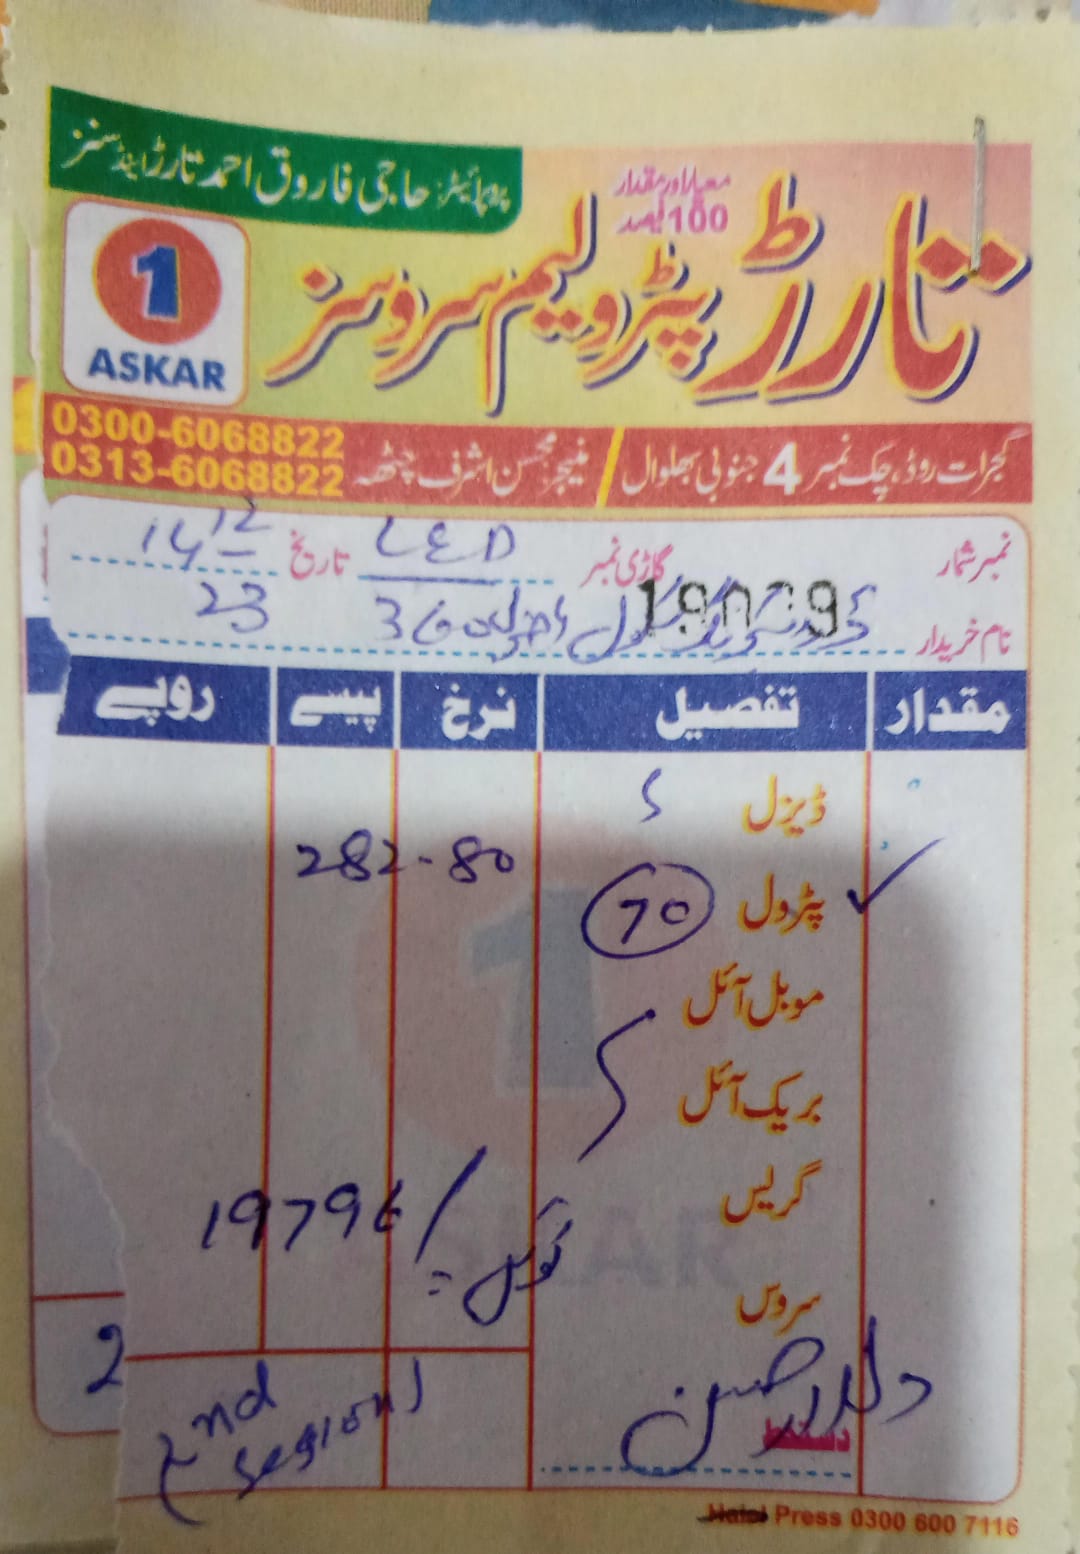 پروپرائیٹرز: حاجی فاروق احمد تارڑ اینڈ سنز
معیار اور مقدار
100 فیصد
تارڑ پٹرولیم سروسز
1
ASKAR
0300-6068822
0313-6068822
گجرات روڈ، چک نمبر 4 جنوبی بھلوال / منیجر: محسن اشرف چٹھہ
نمبر شمار گاڑی نمبر LED تاریخ 14 12
نام خریدار 360 23
مقدار تفصیل نرخ پیسے روپے
ڈیزل
پٹرول 70 282-80
موبل آئل
بریک آئل
گریس
19796/
ٹوٹل =
سروس
2
2nd segional
دلدار حسین
دستخط
Halal Press 0300 600 7116